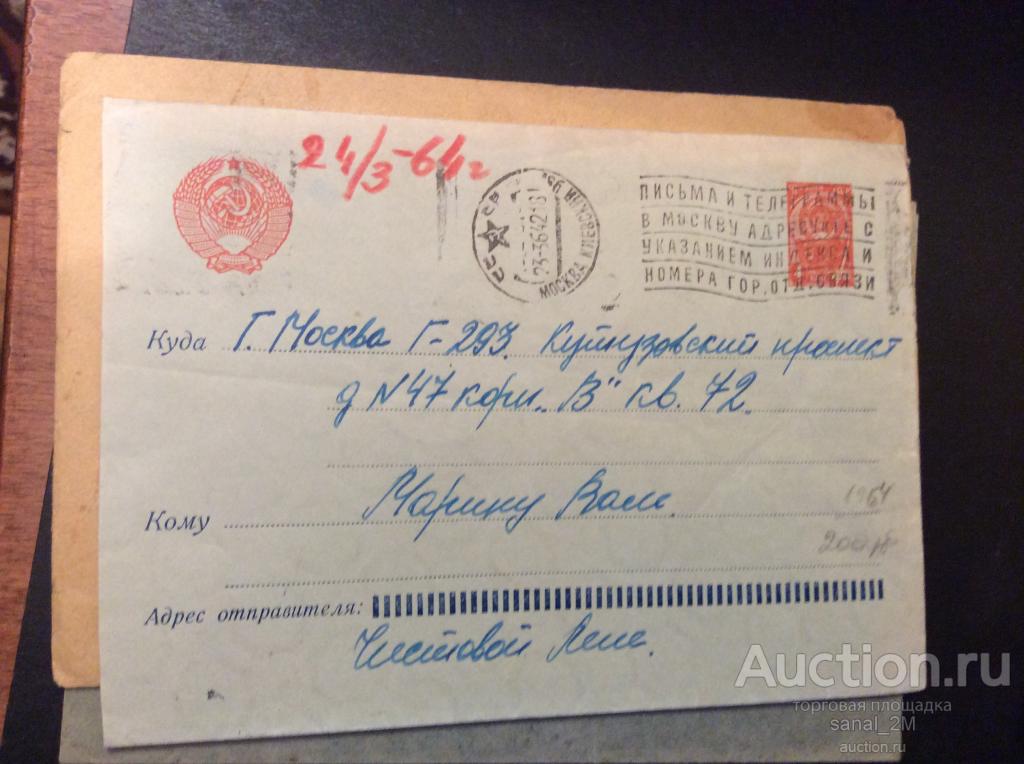 24/3-64г
СССР
23-3-64 21
МОСКВА КИЕВСКИЙ
ПИСЬМА И ТЕЛЕГРАММЫ
В МОСКВУ АДРЕСУЙТЕ С
УКАЗАНИЕМ ИНДЕКСА И
НОМЕРА ГОР. ОТД. СВЯЗИ
Куда Г. Москва Г-293. Кутузовский проспект
д N 47 корп. "В" кв. 72.
Кому Марину Вале.
1964
Адрес отправителя:
Чистовой Лене.
Auction.ru
торговая площадка
sanal_2M
auction.ru